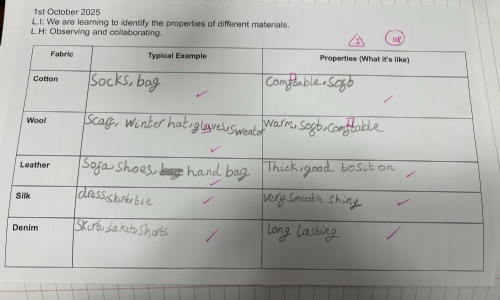 1st October 2025
L.I: We are learning to identify the properties of different materials.
L.H: Observing and collaborating.
Fabric Typical Example Properties (What it's like)
Cotton Socks, bag Comftable, Soft
Wool Scarf, Winter hat, gloves, sweator Warm, soft, comftable
Leather Sofa, shoes, hand bag Thick, good to sit on
Silk dress, skirt, tie very smooth shiny
Denim Skirt, jaket, shorts long lasting